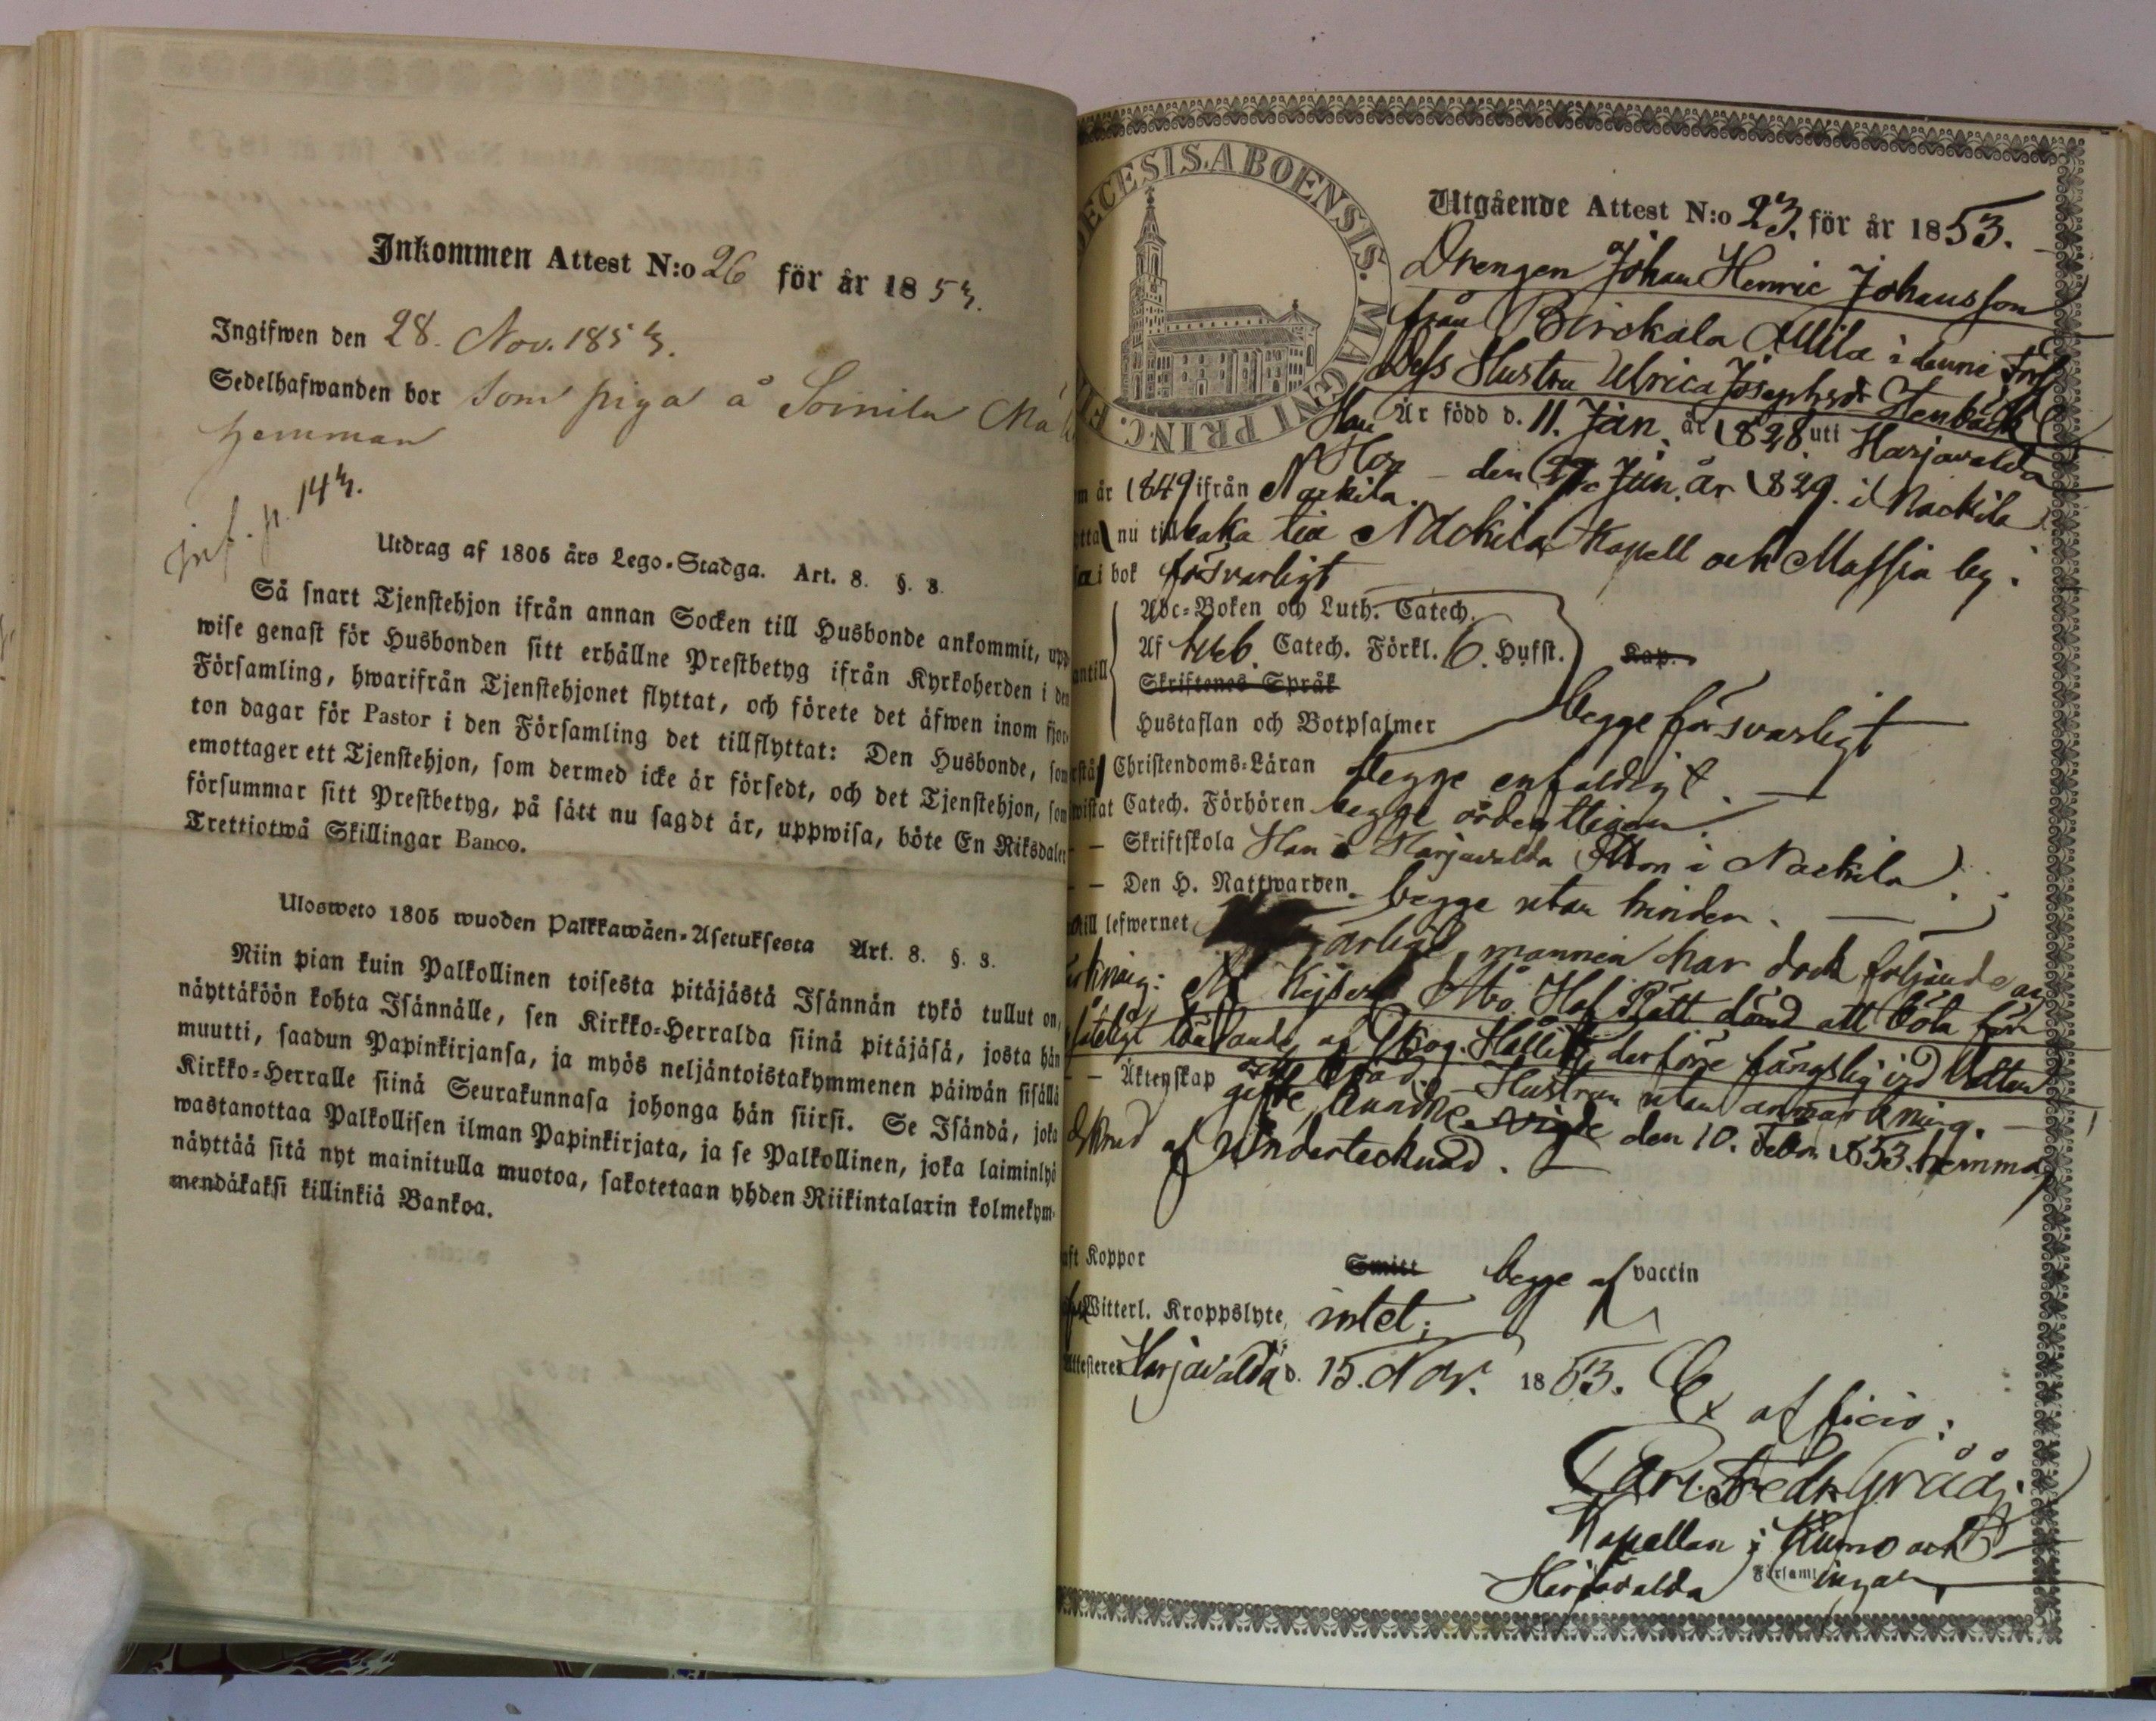 Inkommen Attest N:o 26 för år 1853.
Ingifwen den 28. Nov. 1853.
Sedelhafwanden bor som piga å Soinila
hemman
inf. p. 143.
Utdrag af 1805 års Lego-Stadga. Art. 8. §. 3.
Så snart Tjenstehjon ifrån annan Socken till Husbonde ankommit, upp
wise genast för Husbonden sitt erhållne Prestbetyg ifrån Kyrkoherden i den
Församling, hwarifrån Tjenstehjonet flyttat, och förete det äfwen inom fjor
ton dagar för Pastor i den Församling det tillflyttat: Den Husbonde, som
emottager ett Tjenstehjon, som dermed icke är försedt, och det Tjenstehjon, som
försummar sitt Prestbetyg, på sätt nu sagdt är, uppwisa, böte En Riksdaler
Trettiotwå Skillingar Banco.
Ulosweto 1805 wuoden Palkkawäen-Asetuksesta Art. 8. §. 3.
Niin pian kuin Palkollinen toisesta pitäjästä Isännän tykö tullut on,
näyttäköön kohta Isännälle, sen Kirkko-Herralda siinä pitäjäsä, josta hän
muutti, saadun Papinkirjansa, ja myös neljäntoistakymmenen päiwän sisällä
Kirkko-Herralle siinä Seurakunnasa johonga hän siirsi. Se Isändä, joka
wastanottaa Palkollisen ilman Papinkirjata, ja se Palkollinen, joka laiminlyö
näyttää sitä nyt mainitulla muotoa, sakotetaan yhden Riikintalarin kolmekym-
mendäkaksi killinkiä Bankoa.
DECESIS.ABOENSIS. MAGNI PRINC. FI
Utgående Attest N:o 23. för år 1853.
Drengen Johan Henric Johansson
från Birckala Attila i denne Förs
Dess Hustru Ulrica Josephsdr
Han Är född d. 11. Jan. år 1828. uti Harjavalda
Hon – den 27 Jun. år 1829. i Nackila
m år 1849 ifrån Nackila.
ttar nu tillbaka till Nackila Kapell och Massia by.
i bok försvarligt
Abc-Boken och Luth. Catech.
Af Catech. Förkl. 6. Hufst. Kap.
Skriftenes Språk
Hustaflan och Botpsalmer
antill
begge försvarligt
rstår Christendoms-Läran begge enfaldigt.
wistat Catech. Förhören begge ördenteligen.
– – Skriftskola Han i Harjavalda Hon i Nackila.
– – Den H. Nattwarden begge utan hinder.
till lefwernet ärligt, mannen har dock följande an
ärkning: Af Kejserl. Åbo Hof Rätt dömd att böta för
af Skog. derföre fängslig vid Vatten
och bröd. – Hustrun utan anmärkning.
– – Äktenskap gifte, hundne vigde den 10. Febr. 1853. hemma
af Undertecknad.
aft Koppor Smitt begge af vaccin
Witterl. Kroppslyte, intet.
Attesteres Harjavalda d. 15. Nov. 1853.
Ex officio:
Carl Fredr. Gråå.
Kapellan i Kumo och
Harjavalda Församlingar.